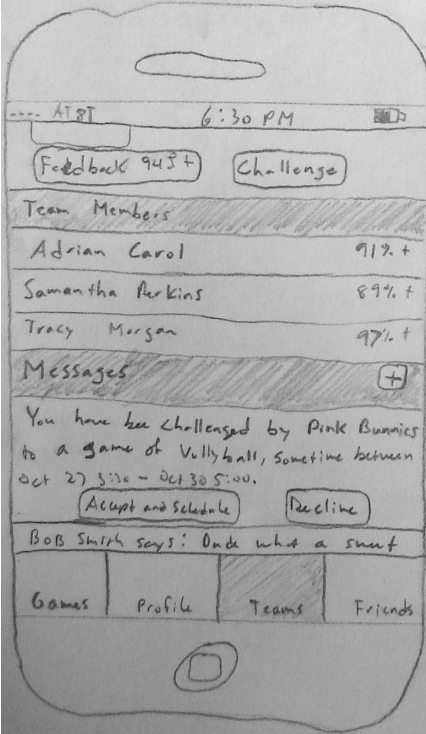 AT&T 6:30 PM
Feedback 94% + Challenge
Team Members
Adrian Carol 91% +
Samantha Perkins 89% +
Tracy Morgan 97% +
Messages +
You have bee challenged by Pink Bunnies
to a game of Vollyball, sometime between
Oct 27 3:30 - Oct 30 5:00.
Accept and Schedule Decline
Bob Smith says: Dude what a
Games Profile Teams Friends